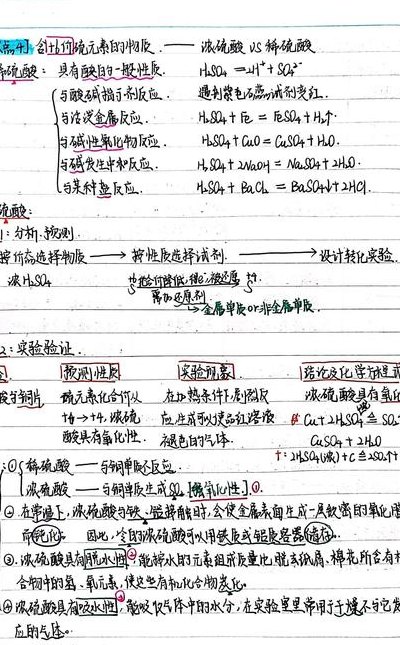 点4] 含+6价硫元素的物质. —— 浓硫酸 VS 稀硫酸
稀硫酸: 具有酸的一般性质. H₂SO₄ = 2H⁺ + SO₄²⁻
与酸碱指示剂反应. 遇到紫色石蕊试剂变红.
与活泼金属反应. H₂SO₄ + Fe = FeSO₄ + H₂↑.
与碱性氧化物反应. H₂SO₄ + CuO = CuSO₄ + H₂O.
与碱发生中和反应. H₂SO₄ + 2NaOH = Na₂SO₄ + 2H₂O.
与某种盐反应. H₂SO₄ + BaCl₂ = BaSO₄↓ + 2HCl.
硫酸:
1: 分析预测.
按价态选择物质 → 按性质选择试剂. → 设计转化实验.
浓H₂SO₄ +6 化合价降低, 被还原 +4
需加还原剂
→ 金属单质or非金属单质.
2: 实验验证.
预测性质 实验现象 结论及化学方程式
酸与铜片 硫元素化合价从 在加热条件下剧烈反 浓硫酸具有氧化
+6 → +4, 浓硫 应, 生成可以使品红溶液 Cu + 2H₂SO₄ ≙ SO₂
酸具有氧化性. 褪色的气体. CuSO₄ + 2H₂O
2H₂SO₄(浓) + C ≙ 2SO₂↑+
: ① 稀硫酸 —— 与铜单质不反应.
浓硫酸 —— 与铜单质生成SO₂ [强氧化性]. ①
② 在常温下, 浓硫酸与铁、铝接触时, 会使金属表面生成一层致密的氧化膜
而钝化. 因此, 冷的浓硫酸可以用铁质或铝质容器储存.
③. 浓硫酸具有脱水性②, 能将水的元素组成质量比脱去纸屑、棉花所含有机
合物中的氢、氧元素, 使这些有机化合物炭化.
④ 浓硫酸具有吸水性③, 能吸收气体中的水分, 在实验室里常用于干燥不与它发
应的气体.